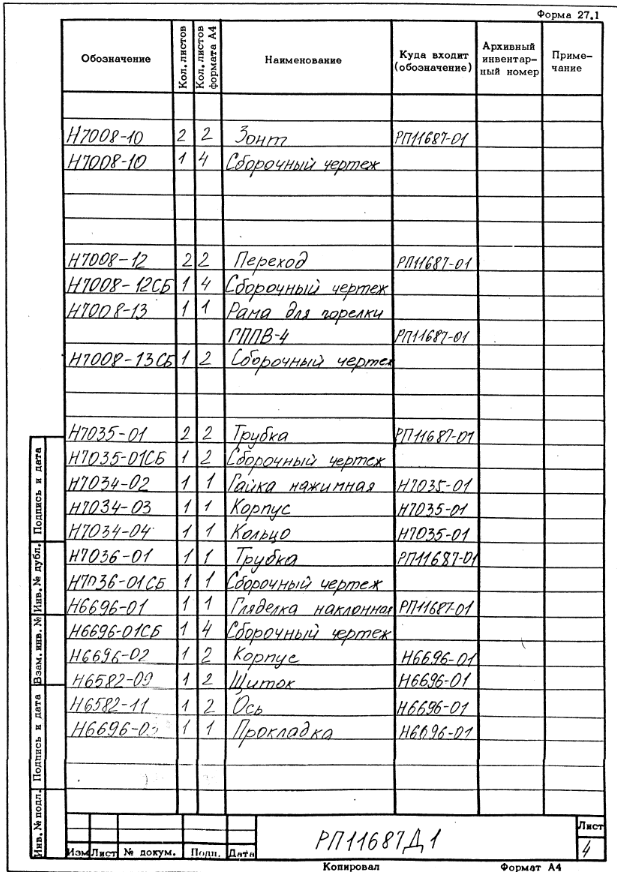 Форма 27.1
Обозначение Кол. листов Кол. листов формата А4 Наименование Куда входит (обозначение) Архивный инвентар-ный номер Приме-чание
Н7008-10 2 2 Зонт РП11687-01
Н7008-10 1 4 Сборочный чертеж
Н7008-12 2 2 Переход РП11687-01
Н7008-12СБ 1 4 Сборочный чертеж
Н7008-13 1 1 Рама для горелки
ГППВ-4 РП11687-01
Н7008-13СБ 1 2 Сборочный чертеж
Н7035-01 2 2 Трубка РП11687-01
Н7035-01СБ 1 2 Сборочный чертеж
Н7034-02 1 1 Гайка нажимная Н7035-01
Н7034-03 1 1 Корпус Н7035-01
Н7034-04 1 1 Кольцо Н7035-01
Н7036-01 1 1 Трубка РП11687-01
Н7036-01СБ 1 1 Сборочный чертеж
Н6696-01 1 1 Гляделка наклонная РП11687-01
Н6696-01СБ 1 4 Сборочный чертеж
Н6696-02 1 2 Корпус Н6696-01
Н6582-09 1 2 Щиток Н6696-01
Н6582-11 1 2 Ось Н6696-01
Н6696-0 1 1 Прокладка Н6696-01
Инв. № подл. Подпись и дата Взам. инв. № Инв. № дубл. Подпись и дата
РП11687Д1
Лист
4
Изм Лист № докум. Подп. Дата
Копировал Формат А4